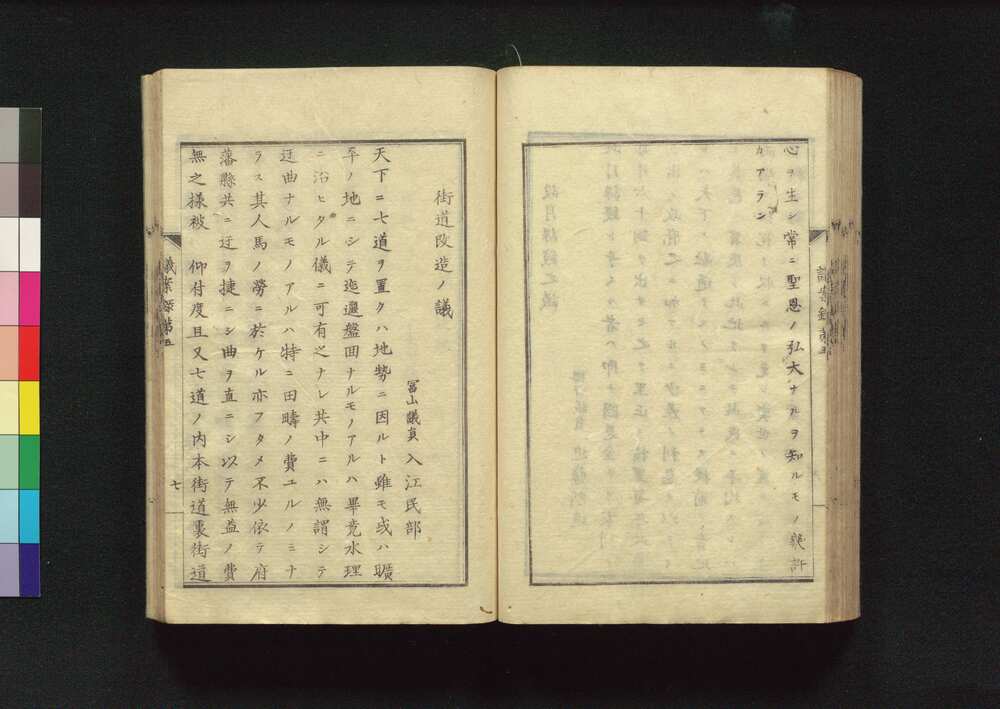 心ヲ生シ常ニ聖恩ノ弘大ナルヲ知ルモノ幾許
カアラン
街道改造ノ議
冨山議員 入江民部
天下ニ七道ヲ置タハ地勢ニ因ルト雖モ或ハ曠
平ノ地ニシテ迤邐盤回ナルモノアルハ畢竟水理
ニ浴ヒタル儀ニ可有之ナレ共中ニハ無謂シテ
迂曲ナルモノアルハ特ニ田疇ノ費エルノミナ
ラス其人馬ノ勞ニ於ケル亦フタメ不少依テ府
藩縣共ニ迂ヲ捷ニシ曲ヲ直ニシ以テ無益ノ費
無之様被 仰付度且又七道ノ内本街道裏街道
議案録第五
七